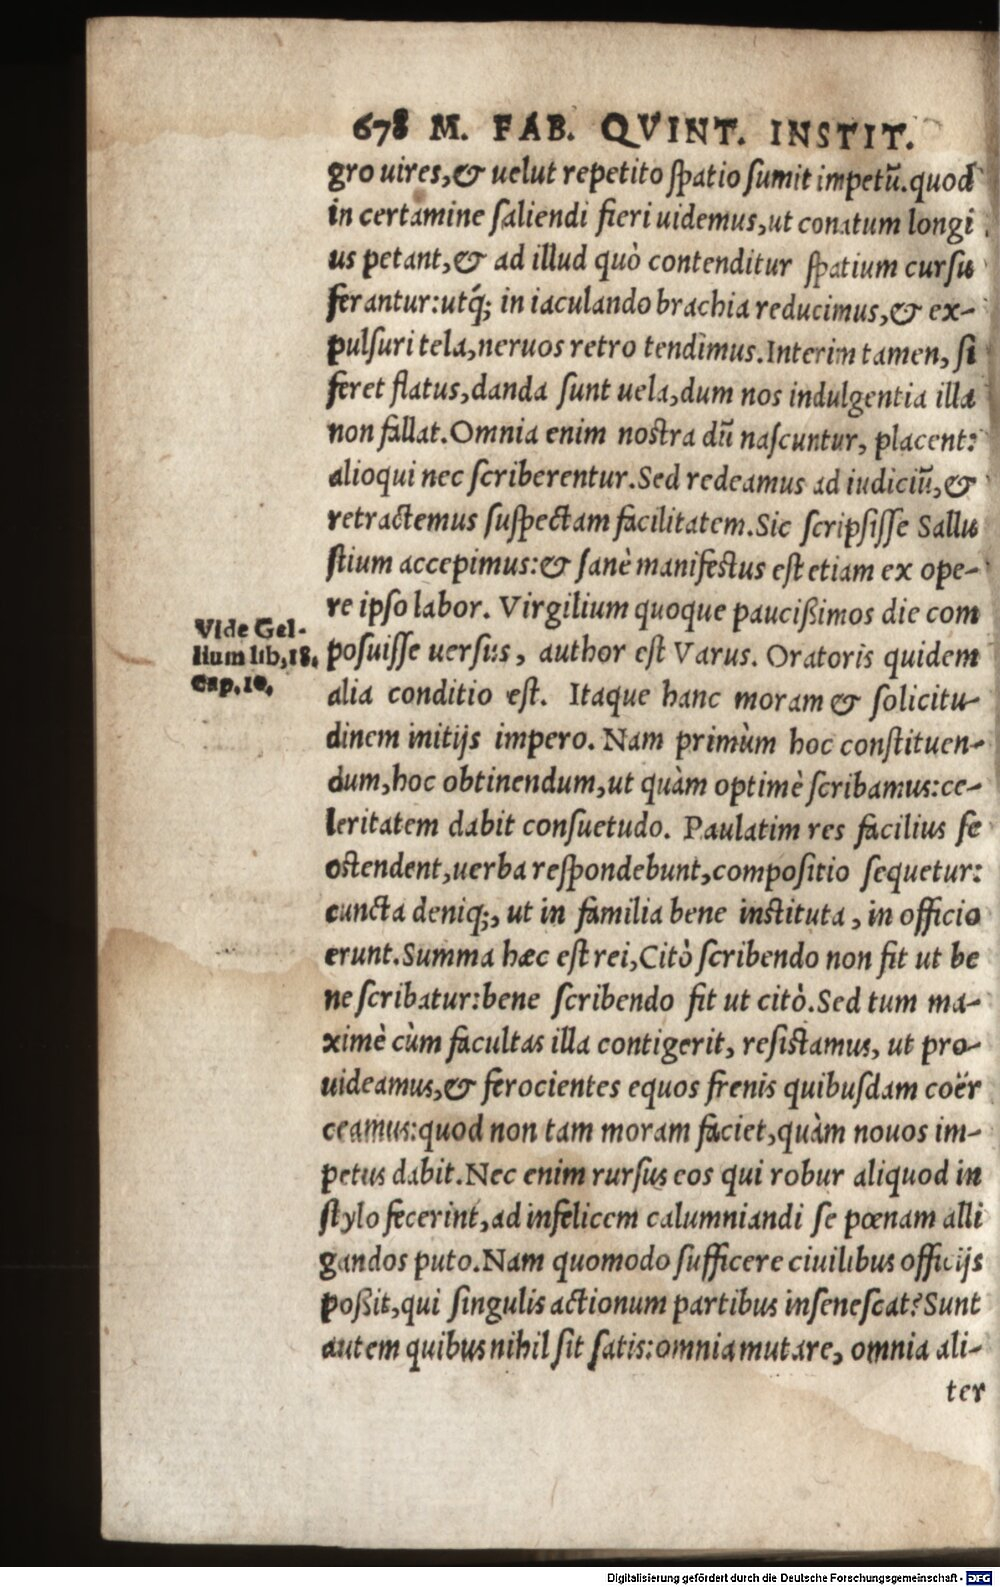 678 M. FAB. QVINT. INSTIT.
gro uires,& uelut repetito spatio sumit impetū.quod
in certamine saliendi fieri uidemus,ut conatum longi
us petant,& ad illud quò contenditur spatium cursu
ferantur:utq́; in iaculando brachia reducimus,& ex-
pulsuri tela,neruos retro tendimus.Interim tamen, si
feret flatus,danda sunt uela,dum nos indulgentia illa
non fallat.Omnia enim nostra dū nascuntur, placent:
alioqui nec scriberentur.Sed redeamus ad iudiciū,&
retractemus suspectam facilitatem.Sic scripsisse Sallu
stium accepimus:& sanè manifestus est etiam ex ope-
re ipso labor. Virgilium quoque paucißimos die com
Vide Gel-
lium lib,18.
Cap.10.
posuisse uersus, author est Varus. Oratoris quidem
alia conditio est. Itaque hanc moram & solicitu-
dinem initijs impero. Nam primùm hoc constituen-
dum,hoc obtinendum,ut quàm optimè scribamus:ce-
leritatem dabit consuetudo. Paulatim res facilius se
ostendent,uerba respondebunt,compositio sequetur:
cuncta deniq;, ut in familia bene instituta, in officio
erunt.Summa hæc est rei,Citò scribendo non fit ut be
ne scribatur:bene scribendo fit ut citò.Sed tum ma-
ximè cùm facultas illa contigerit, resistamus, ut pro-
uideamus,& ferocientes equos frenis quibusdam coër
ceamus:quod non tam moram faciet,quàm nouos im-
petus dabit.Nec enim rursus eos qui robur aliquod in
stylo fecerint,ad infelicem calumniandi se pœnam alli
gandos puto.Nam quomodo sufficere ciuilibus officijs
poßit,qui singulis actionum partibus insenescat?Sunt
autem quibus nihil sit satis:omnia mutare, omnia ali-
ter
Digitalisierung gefördert durch die Deutsche Forschungsgemeinschaft - DFG